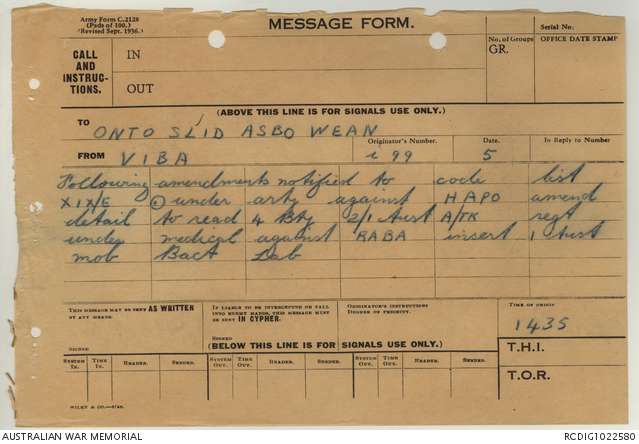 Army Form C.2128
(Pads of 100.)
(Revised Sept. 1936.)
MESSAGE FORM.
Serial No:
No. of Groups
GR.
OFFICE DATE STAMP
CALL
AND
INSTRUC-
TIONS.
IN
OUT
(ABOVE THIS LINE IS FOR SIGNALS USE ONLY.)
TO
ONTO SLID ASBO WEAN
FROM
VIBA
Originator's Number.
Date.
In Reply to Number
99
5
Following amendments notified to code list
XIX/E under arty against HAPO amend
detail to read 4 Bty 2/1 Aust A/TK regt
under medical against RABA insert 1 Aust
mob Bact Lab
THIS MESSAGE MAY BE SENT AS WRITTEN
BY ANY MEANS.
IF LIABLE TO BE INTERCEPTED OR FALL
INTO ENEMY HANDS, THIS MESSAGE MUST
BE SENT IN CYPHER.
ORIGINATOR'S INSTRUCTIONS
DEGREE OF PRIORITY.
TIME OF ORIGIN
1435
SIGNED
SIGNED
(BELOW THIS LINE IS FOR SIGNALS USE ONLY.)
T.H.I.
T.O.R.
SYSTEM IN. TIME IN. READER. SENDER. SYSTEM OUT. TIME OUT. READER. SENDER. SYSTEM OUT. TIME OUT. READER. SENDER.
AUSTRALIAN WAR MEMORIAL
RCDIG1022580